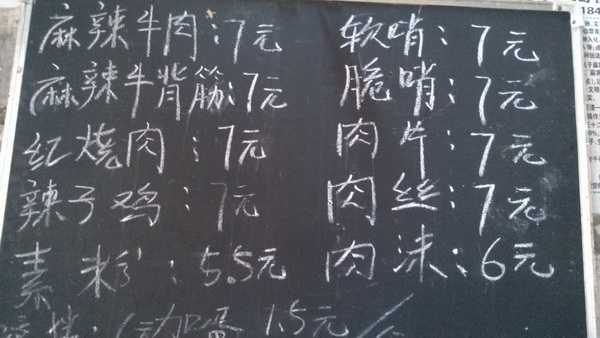 麻辣牛肉:7元 软哨:7元
麻辣牛背筋:7元 脆哨:7元
红烧肉:7元 肉片:7元
辣子鸡:7元 肉丝:7元
素粉:5.5元 肉沫:6元
加蛋 1.5元/